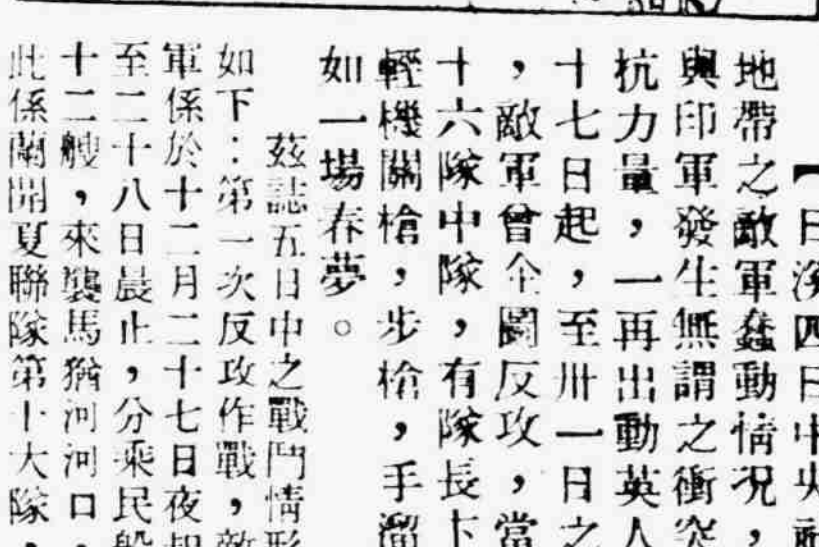 【日溪四日中央
地帶之敵軍蠢動情況，
與印軍發生無謂之衝突
抗力量，一再出動英人
十七日起，至卅一日之
，敵軍曾企圖反攻，當
十六隊中隊，有隊長卡
輕機關槍，步槍，手溜
如一場春夢。
茲誌五日中之戰鬥情形
如下：第一次反攻作戰，敵
軍係於十二月二十七日夜起
至二十八日晨止，分乘民船
十二艘，來襲馬猶河河口，
此係蘭開夏聯隊第十大隊，